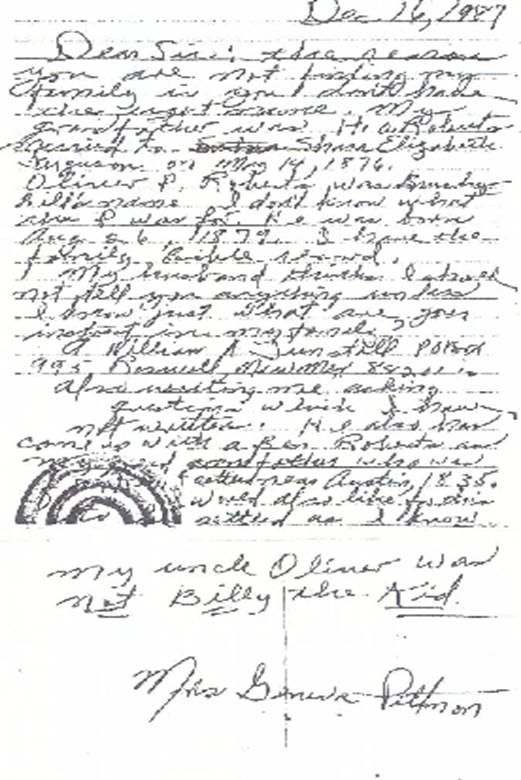 Dec 16, 1987
Dear Sir: the reason
you are not finding my
family is you don't have
the right name. My
grandfather was H. O. Roberts
married to Sarah Elizabeth
Ferguson on May 14, 1876.
Oliver P. Roberts was Brushy
hill's name I don't know what
the P was for. He was born
Aug 26, 1879. I have the
family Bible record.
My husband thinks I should
not tell you anything unless
I know just what are you
intrest in my family?
A William A Tunstill PO Box
995 Roswell, New Mex 88201 is
also writing me asking
question which I have
not written. He also has
come up with a Ben Roberts as
my grandfather who
settled near Austin, 1835.
would also like to this
settled as I know
my uncle Oliver was
not Billy the Kid.
Mrs Geneva Pittmon